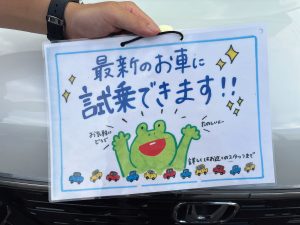 最新のお車に
試乗できます!!
お気軽に
どうぞ
たのしい〜
詳しくはお近くのスタッフまで